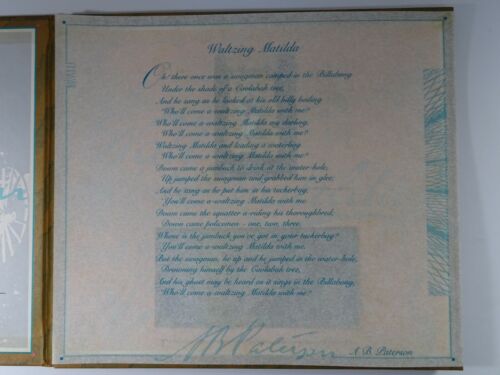 Waltzing Matilda
Oh! there once was a swagman camped in the Billabong
Under the shade of a Coolabah tree,
And he sang as he looked at his old billy boiling
"Who'll come a-waltzing Matilda with me?
Who'll come a-waltzing Matilda my darling,
Who'll come a-waltzing Matilda with me?
Waltzing Matilda and leading a waterbag
Who'll come a-waltzing Matilda with me?
Down came a jumbuck to drink at the water-hole,
Up jumped the swagman and grabbed him in glee,
And he sang as he put him in his tuckerbag,
You'll come a-waltzing Matilda with me
Down came the squatter a-riding his thoroughbred,
Down came policemen - one, two, three.
Where is the jumbuck you've got in your tuckerbag?
You'll come a-waltzing Matilda with me.
But the swagman, he up and he jumped in the water-hole,
Drowning himself by the Coolabah tree,
And his ghost may be heard as it sings in the Billabong,
"Who'll come a-waltzing Matilda with me?"
AB Paterson
A. B. Paterson